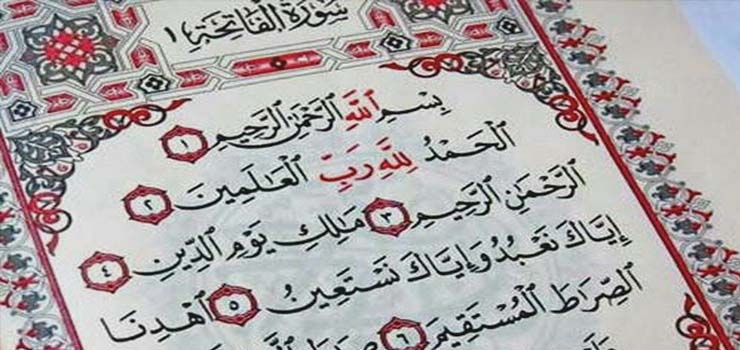 سُورَةُ الْفَاتِحَةِ ١
بِسْمِ اللَّهِ الرَّحْمَٰنِ الرَّحِيمِ ١
الْحَمْدُ لِلَّهِ رَبِّ الْعَالَمِينَ ٢
الرَّحْمَٰنِ الرَّحِيمِ ٣ مَلِكِ يَوْمِ الدِّينِ ٤
إِيَّاكَ نَعْبُدُ وَإِيَّاكَ نَسْتَعِينُ ٥ اهْدِنَا
الصِّرَاطَ الْمُسْتَقِيمَ ٦ صِرَاطَ